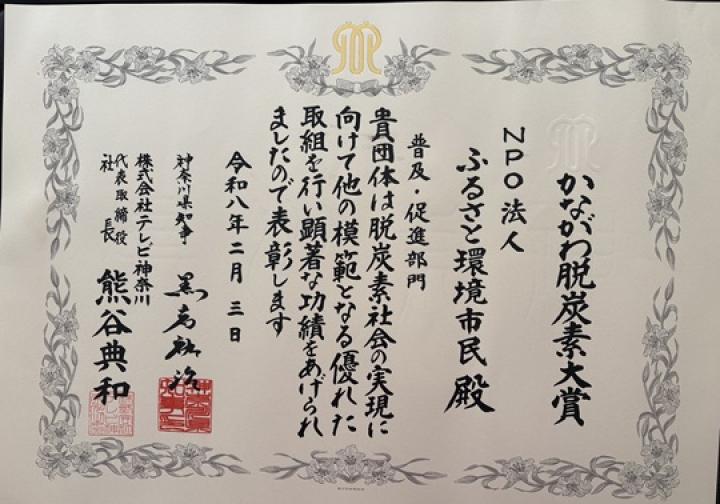 かながわ脱炭素大賞
NPO法人
ふるさと環境市民 殿
普及・促進部門
貴団体は脱炭素社会の実現に
向けて他の模範となる優れた
取組を行い顕著な功績をあげられ
ましたので表彰します
令和八年二月三日
神奈川県知事 黒岩祐治
株式会社テレビ神奈川
代表取締役
社長 熊谷典和